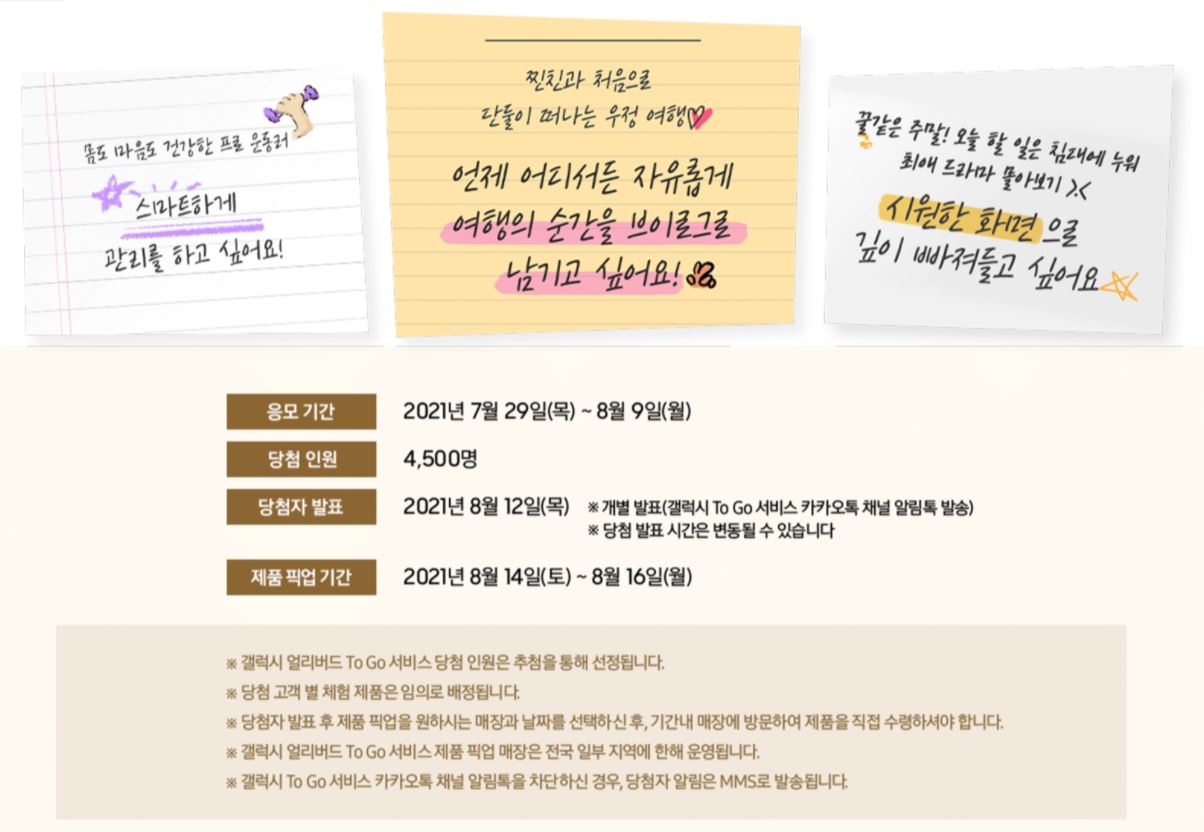 몸도 마음도 건강한 프로 운동러
스마트하게
관리를 하고 싶어요!
찐친과 처음으로
단둘이 떠나는 우정 여행
언제 어디서든 자유롭게
여행의 순간을 브이로그로
남기고 싶어요!
꿀같은 주말! 오늘 할 일은 침대에 누워
최애 드라마 몰아보기 >.<
시원한 화면으로
깊이 빠져들고 싶어요
응모 기간 2021년 7월 29일(목) ~ 8월 9일(월)
당첨 인원 4,500명
당첨자 발표 2021년 8월 12일(목) ※ 개별 발표(갤럭시 To Go 서비스 카카오톡 채널 알림톡 발송)
※ 당첨 발표 시간은 변동될 수 있습니다
제품 픽업 기간 2021년 8월 14일(토) ~ 8월 16일(월)
※ 갤럭시 얼리버드 To Go 서비스 당첨 인원은 추첨을 통해 선정됩니다.
※ 당첨 고객 별 체험 제품은 임의로 배정됩니다.
※ 당첨자 발표 후 제품 픽업을 원하시는 매장과 날짜를 선택하신 후, 기간내 매장에 방문하여 제품을 직접 수령하셔야 합니다.
※ 갤럭시 얼리버드 To Go 서비스 제품 픽업 매장은 전국 일부 지역에 한해 운영됩니다.
※ 갤럭시 To Go 서비스 카카오톡 채널 알림톡을 차단하신 경우, 당첨자 알림은 MMS로 발송됩니다.